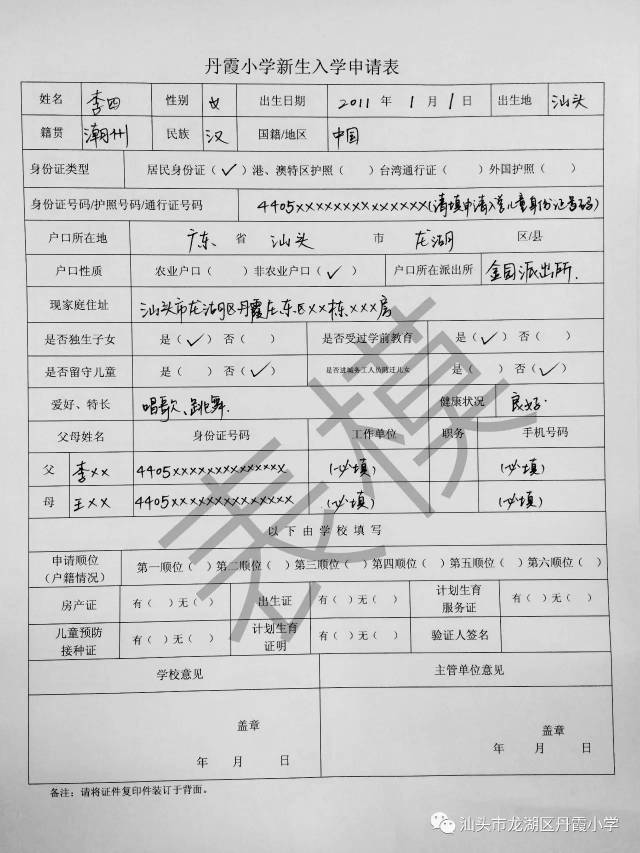 丹霞小学新生入学申请表
姓名 李四 性别 女 出生日期 2011年1月1日 出生地 汕头
籍贯 潮州 民族 汉 国籍/地区 中国
身份证类型 居民身份证（✓）港、澳特区护照（ ）台湾通行证（ ）外国护照（ ）
身份证号码/护照号码/通行证号码 4405xxxxxxxxxxxxxx(请填申请入学儿童身份证号码)
户口所在地 广东 省 汕头 市 龙湖 区/县
户口性质 农业户口（ ）非农业户口（✓） 户口所在派出所 金园派出所.
现家庭住址 汕头市龙湖区丹霞庄东区xx栋xxx房
是否独生子女 是（✓）否（ ） 是否受过学前教育 是（✓）否（ ）
是否留守儿童 是（ ）否（✓） 是否进城务工人员随迁儿女 是（ ）否（✓）
爱好、特长 唱歌、跳舞. 健康状况 良好.
父母姓名 身份证号码 工作单位 职务 手机号码
父 李xx 4405xxxxxxxxxxxxxx (必填) (必填)
母 王xx 4405xxxxxxxxxxxxxx (必填) (必填)
以下由学校填写
申请顺位（户籍情况） 第一顺位（ ）第二顺位（ ）第三顺位（ ）第四顺位（ ）第五顺位（ ）第六顺位（ ）
房产证 有（ ）无（ ） 出生证 有（ ）无（ ） 计划生育服务证 有（ ）无（ ）
儿童预防接种证 有（ ）无（ ） 计划生育证明 有（ ）无（ ） 验证人签名
学校意见 主管单位意见
盖章 盖章
年 月 日 年 月 日
备注：请将证件复印件装订于背面。
表模
汕头市龙湖区丹霞小学